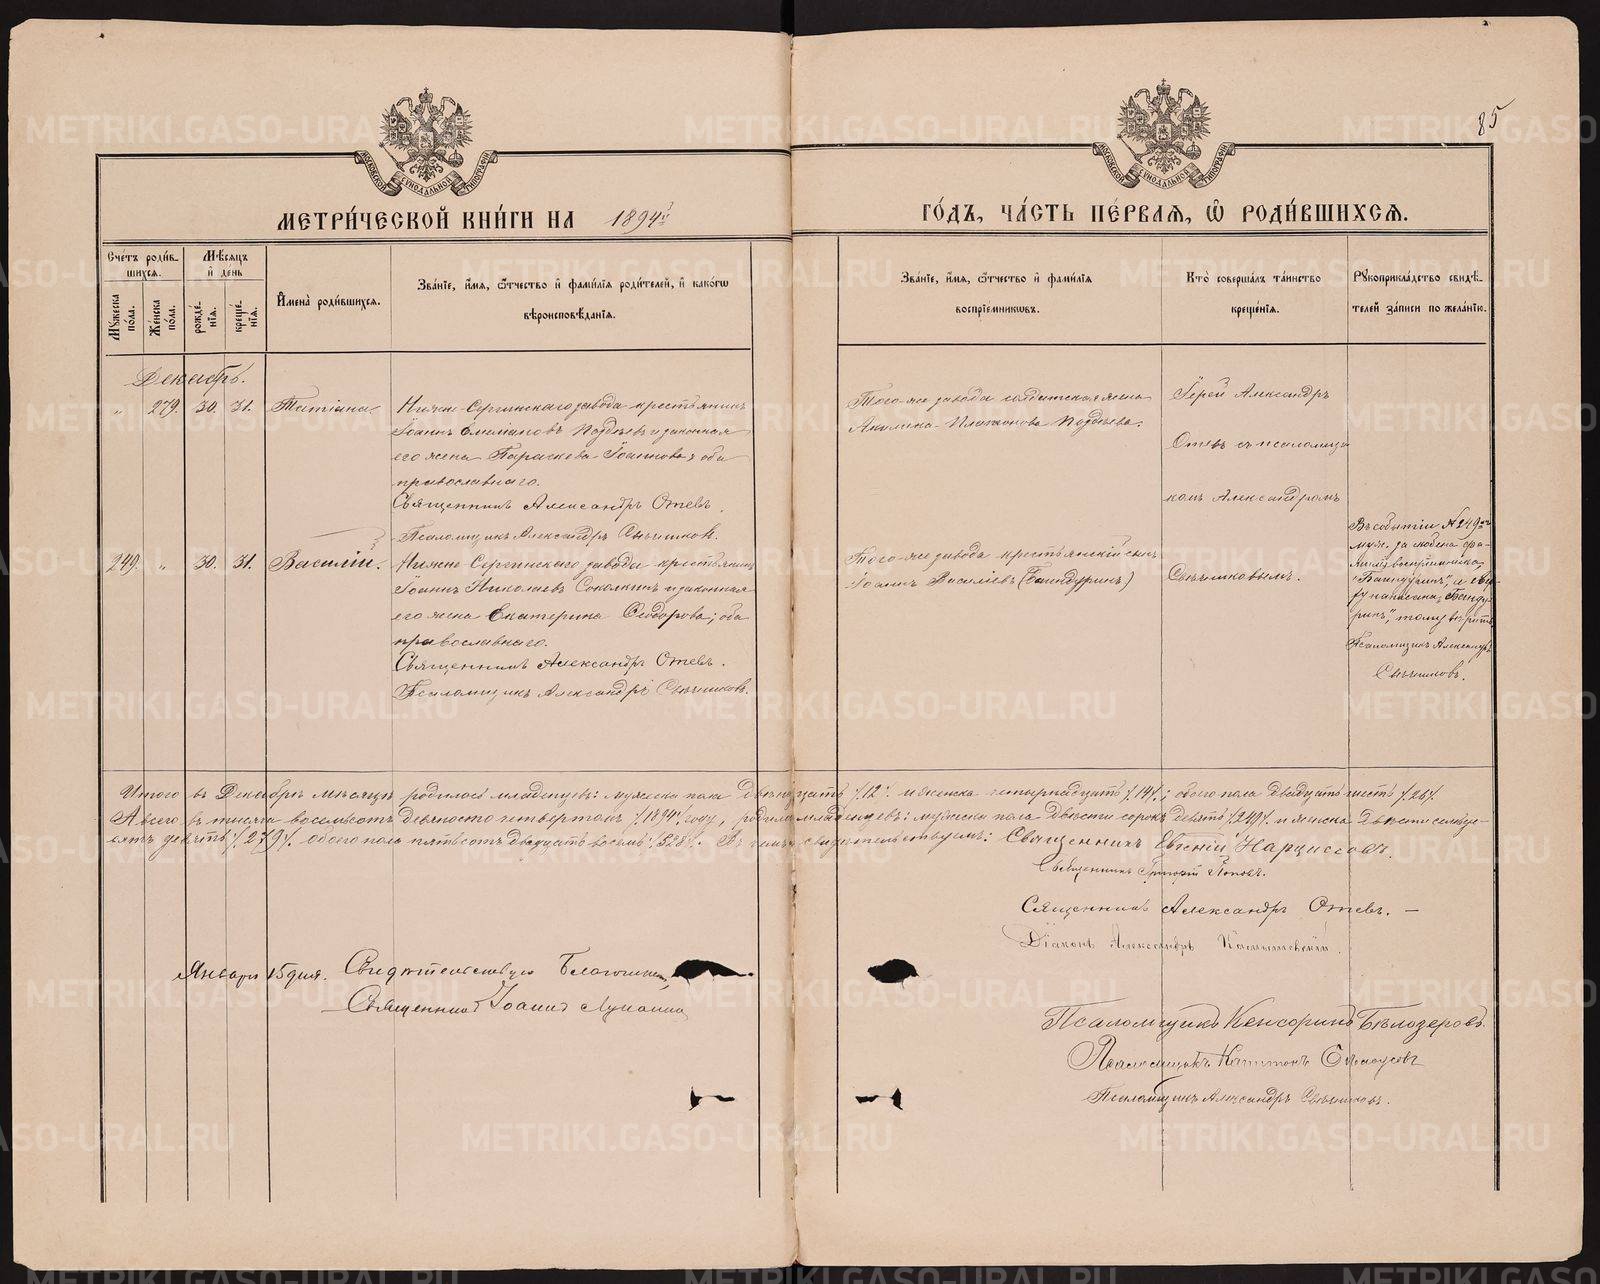 85
МЕТРИ́ЧЕСКОЙ КНИ́ГИ НА 1894й
ГО́ДЪ, ЧА́СТЬ ПЕ́РВАЯ, Ѡ РОДИ́ВШИХСЯ.
Сче́тъ роди́в-
шихся.
Мѣсяцъ
и де́нь
Му́жеска по́ла.
Же́нска по́ла.
рожде́-
нія.
креще́-
нія.
И҆мена̀ роди́вшихся.
Зва́ніе, и҆́мя, ѻ҆́тчество и҆ фами́лія роди́телей, и҆ како́гѡ
вѣроисповѣ́данія.
Зва́ніе, и҆́мя, ѻ҆́тчество и҆ фами́лія
воспрїе́мниковъ.
Кто̀ соверша́лъ та́инство
креще́нія.
Рꙋкоприкла́дство свидѣ́-
телей за́писи по жела́нію.
Декабрь.
„ 279. 30. 31. Татіана
Нижне-Сергинскаго завода крестьянинъ
Іоаннъ Емеліановъ Поздѣевъ и законная
его жена Параскева Іоаннова; оба
православнаго.
Священникъ Александръ Отевъ.
Псаломщикъ Александръ Свѣчниковъ.
Того-же завода солдатская жена
Акилина Платонова Поздѣева.
Іерей Александръ
Отевъ съ псаломщи
комъ Александромъ
Свѣчниковымъ.
249. „ 30. 31. Василій.
Нижне-Сергинскаго завода крестьянинъ
Іоаннъ Николаевъ Соколкинъ и законная
его жена Екатерина Ѳеодорова; оба
православнаго.
Священникъ Александръ Отевъ.
Псаломщикъ Александръ Свѣчниковъ.
Того-же завода крестьянскій сынъ
Іоаннъ Василіевъ (Бандуринъ)
Въ событіи № 249мъ
муж. пола
фа-
милія воспріемника,
а свер-
ху написана: „Банду-
ринъ", тому вѣрить
Псаломщикъ Александръ
Свѣчниковъ.
Итого въ Декабрѣ мѣсяцѣ родилось младенцевъ: мужеска пола двѣнадцать /12/ и женска четырнадцать /14/; обоего пола двадцать шесть /26/.
А всего въ тысяча восемьсотъ девяносто четвертомъ /1894/ году, родилось младенцевъ: мужеска пола двѣсти сорокъ девять /249/ и женска двѣсти семьде-
сятъ девять /279/ обоего пола пятьсотъ двадцать восемь /528/. Въ чемъ и свидѣтельствуемъ: Священникъ Евгеній Нарциссовъ.
Священникъ Григорій Поповъ.
Священникъ Александръ Отевъ. –
Діаконъ Александръ
Января 15 дня. Свидѣтельствую Благочинный
Священникъ Іоаннъ
Псаломщикъ Кенсоринъ Бѣлозеровъ.
Псаломщикъ
Псаломщикъ Александръ Свѣчниковъ.
МОСКОВСКОЙ СѴНОДАЛЬНОЙ ТИПОГРАФІИ
МОСКОВСКОЙ СѴНОДАЛЬНОЙ ТИПОГРАФІИ
METRIKI.GASO-URAL.RU